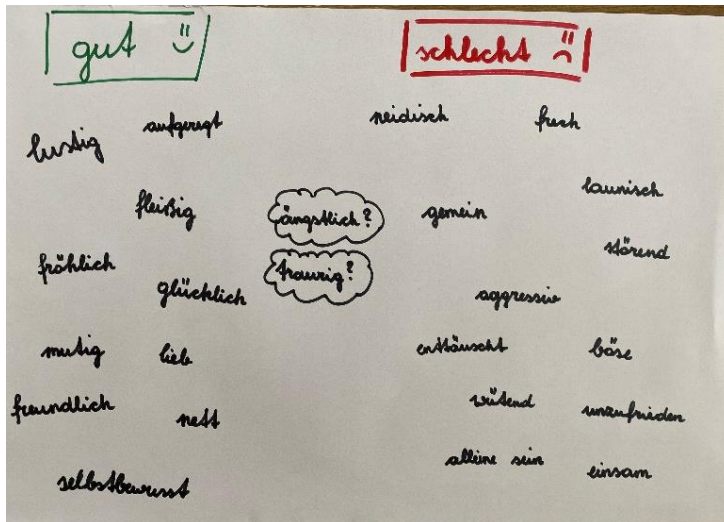 gut
schlecht
lustig
aufgeregt
fleißig
fröhlich
glücklich
mutig
lieb
freundlich
nett
selbstbewusst
ängstlich?
traurig?
neidisch
frech
launisch
gemein
störend
aggressiv
enttäuscht
böse
wütend
unzufrieden
alleine sein
einsam